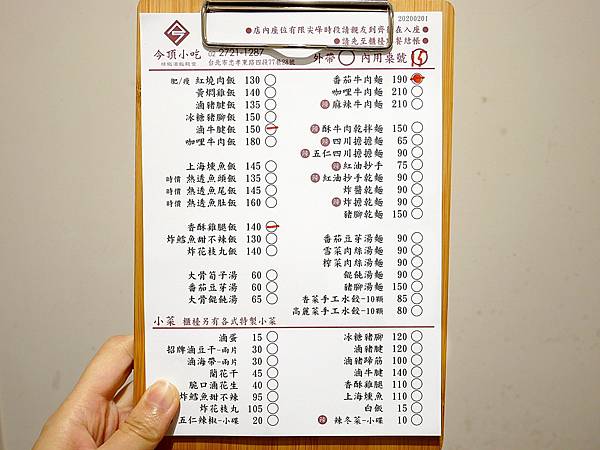 20200201
●店內座位有限尖峰時段請親友到齊後在入座●
●請先至櫃檯點餐結帳●
今頂小吃
2721-1287
台北市忠孝東路四段77巷24號
外帶 內用桌號
肥/瘦 紅燒肉飯 130
黃燜雞飯 140
滷豬腱飯 135
冰糖豬腳飯 150
滷牛腱飯 150
咖哩牛肉飯 180
上海燻魚飯 145
時價 熬透魚頭飯 135
時價 熬透魚尾飯 145
時價 熬透魚肚飯 160
香酥雞腿飯 140
炸鱈魚甜不辣飯 130
炸花枝丸飯 140
大骨筍子湯 60
番茄豆芽湯 60
大骨餛飩湯 65
番茄牛肉麵 190
咖哩牛肉麵 210
辣 麻辣牛肉麵 210
辣 酥牛肉乾拌麵 150
辣 四川擔擔麵 65
辣 五仁四川擔擔麵 90
辣 紅油抄手 75
辣 紅油抄手乾麵 90
炸醬乾麵 90
辣 炸擔乾麵 90
豬腳乾麵 150
番茄豆芽湯麵 90
雪菜肉絲湯麵 90
榨菜肉絲湯麵 90
餛飩湯麵 90
豬腳湯麵 150
香菜手工水餃-10顆 85
高麗菜手工水餃-10顆 80
小菜 櫃檯另有各式特製小菜
滷蛋 15
招牌滷豆干-兩片 30
滷海帶-兩片 30
蘭花干 45
脆口滷花生 40
炸鱈魚甜不辣 95
炸花枝丸 105
五仁辣椒-小碟 20
冰糖豬腳 120
滷豬腱 120
滷豬蹄筋 100
滷牛腱 140
香酥雞腿 110
上海燻魚 110
白飯 15
辣 辣冬菜-小碟 10